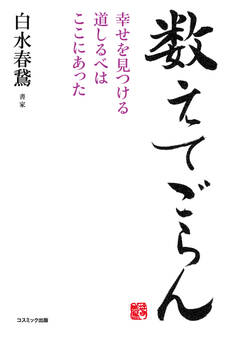 数えてごらん
幸せを見つける
道しるべは
ここにあった
白水春鵞
書家
コスミック出版